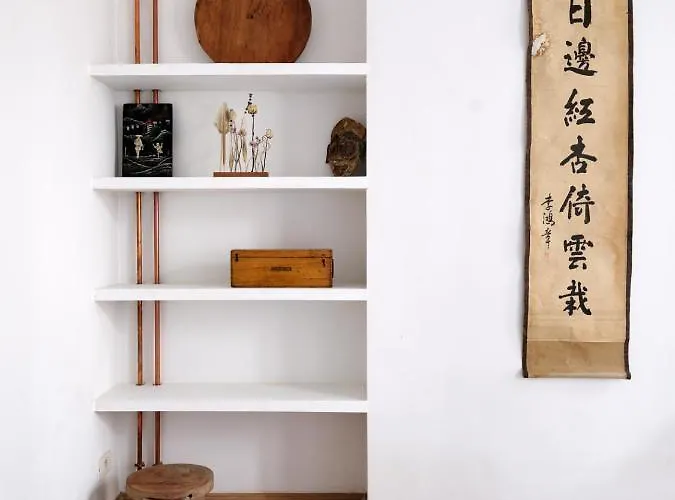 日邊紅杏倚雲栽
李鴻章